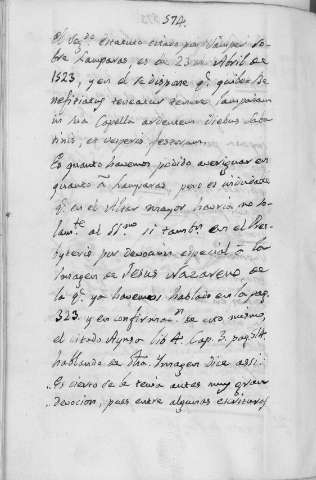 574.
El seg.do estatuto citado por Samper so-
bre Lamparas, es de 23 de Abril de
1523, y en el se dispone q.e quilibet Be-
neficiatus teneatur tenere lampadam
in sua Capella ardentem diebus Sabba-
tinis, et vesperis festorum.
Es quanto havemos podido averiguar en
quanto à Lamparas, pero es indudable
q.e en el Altar mayor havria no so-
lam.te al SS.mo si tamb.n en el Pres-
byterio por devocion especial à la
Imagen de Jesus Nazareno de
la q.e ya havemos hablado en la pag.
323. y en confirmac.n de esto mismo,
el citado Aynso lib. 4. Cap. 3. pag. 514
hablando de dha. Imagen dice assi:
"Es cierto de le tenia antes muy gran
"devocion, pues entre algunas escrituras